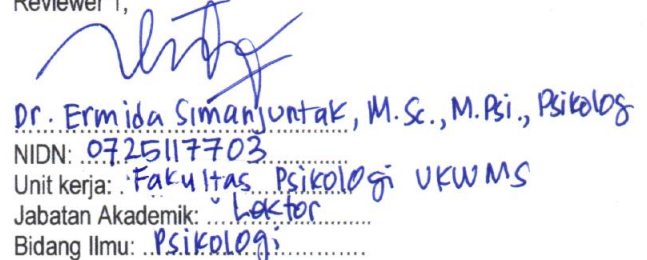 Reviewer 1,
Dr. Ermida Simanjuntak, M.Sc., M.Psi., Psikolog
NIDN: 0725117703
Unit kerja: Fakultas Psikologi UKWMS
Jabatan Akademik: Lektor
Bidang Ilmu: Psikologi